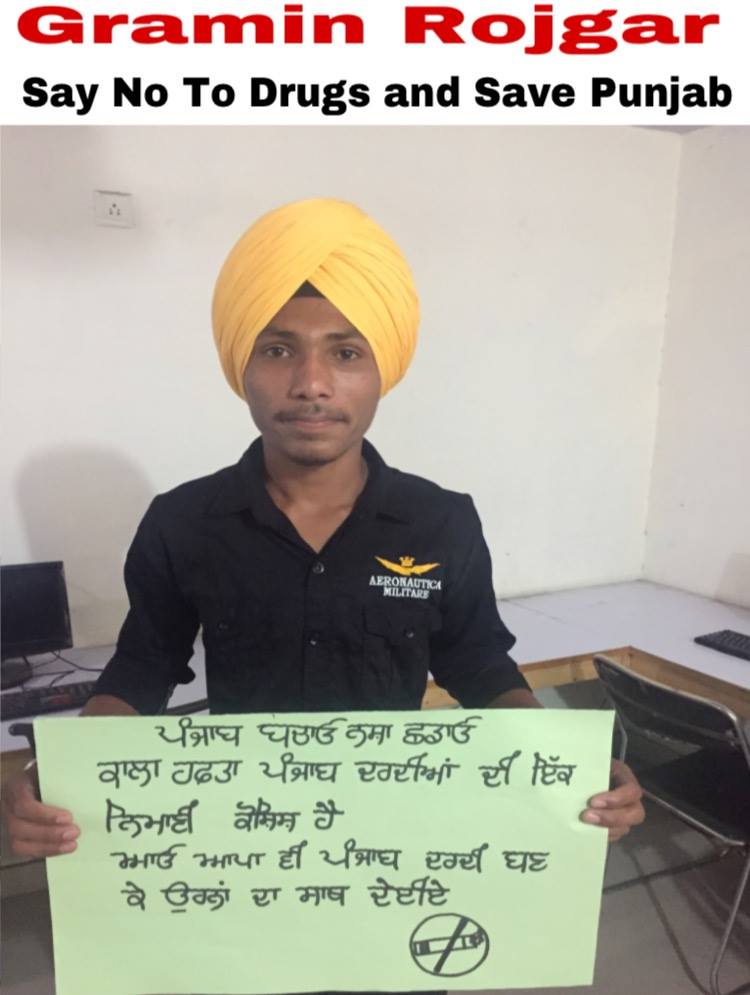 Gramin Rojgar
Say No To Drugs and Save Punjab
AERONAUTICA
MILITARE
ਪੰਜਾਬ ਬਚਾਓ ਨਸ਼ਾ ਛਡਾਓ
ਕਾਲਾ ਹਫਤਾ ਪੰਜਾਬ ਦਰਦੀਆਂ ਦੀ ਇੱਕ
ਨਿਮਾਣੀ ਕੋਸ਼ਿਸ਼ ਹੈ
ਆਓ ਆਪਾ ਵੀ ਪੰਜਾਬ ਦਰਦੀ ਬਣ
ਕੇ ਉਹਨਾਂ ਦਾ ਸਾਥ ਦੇਈਏ